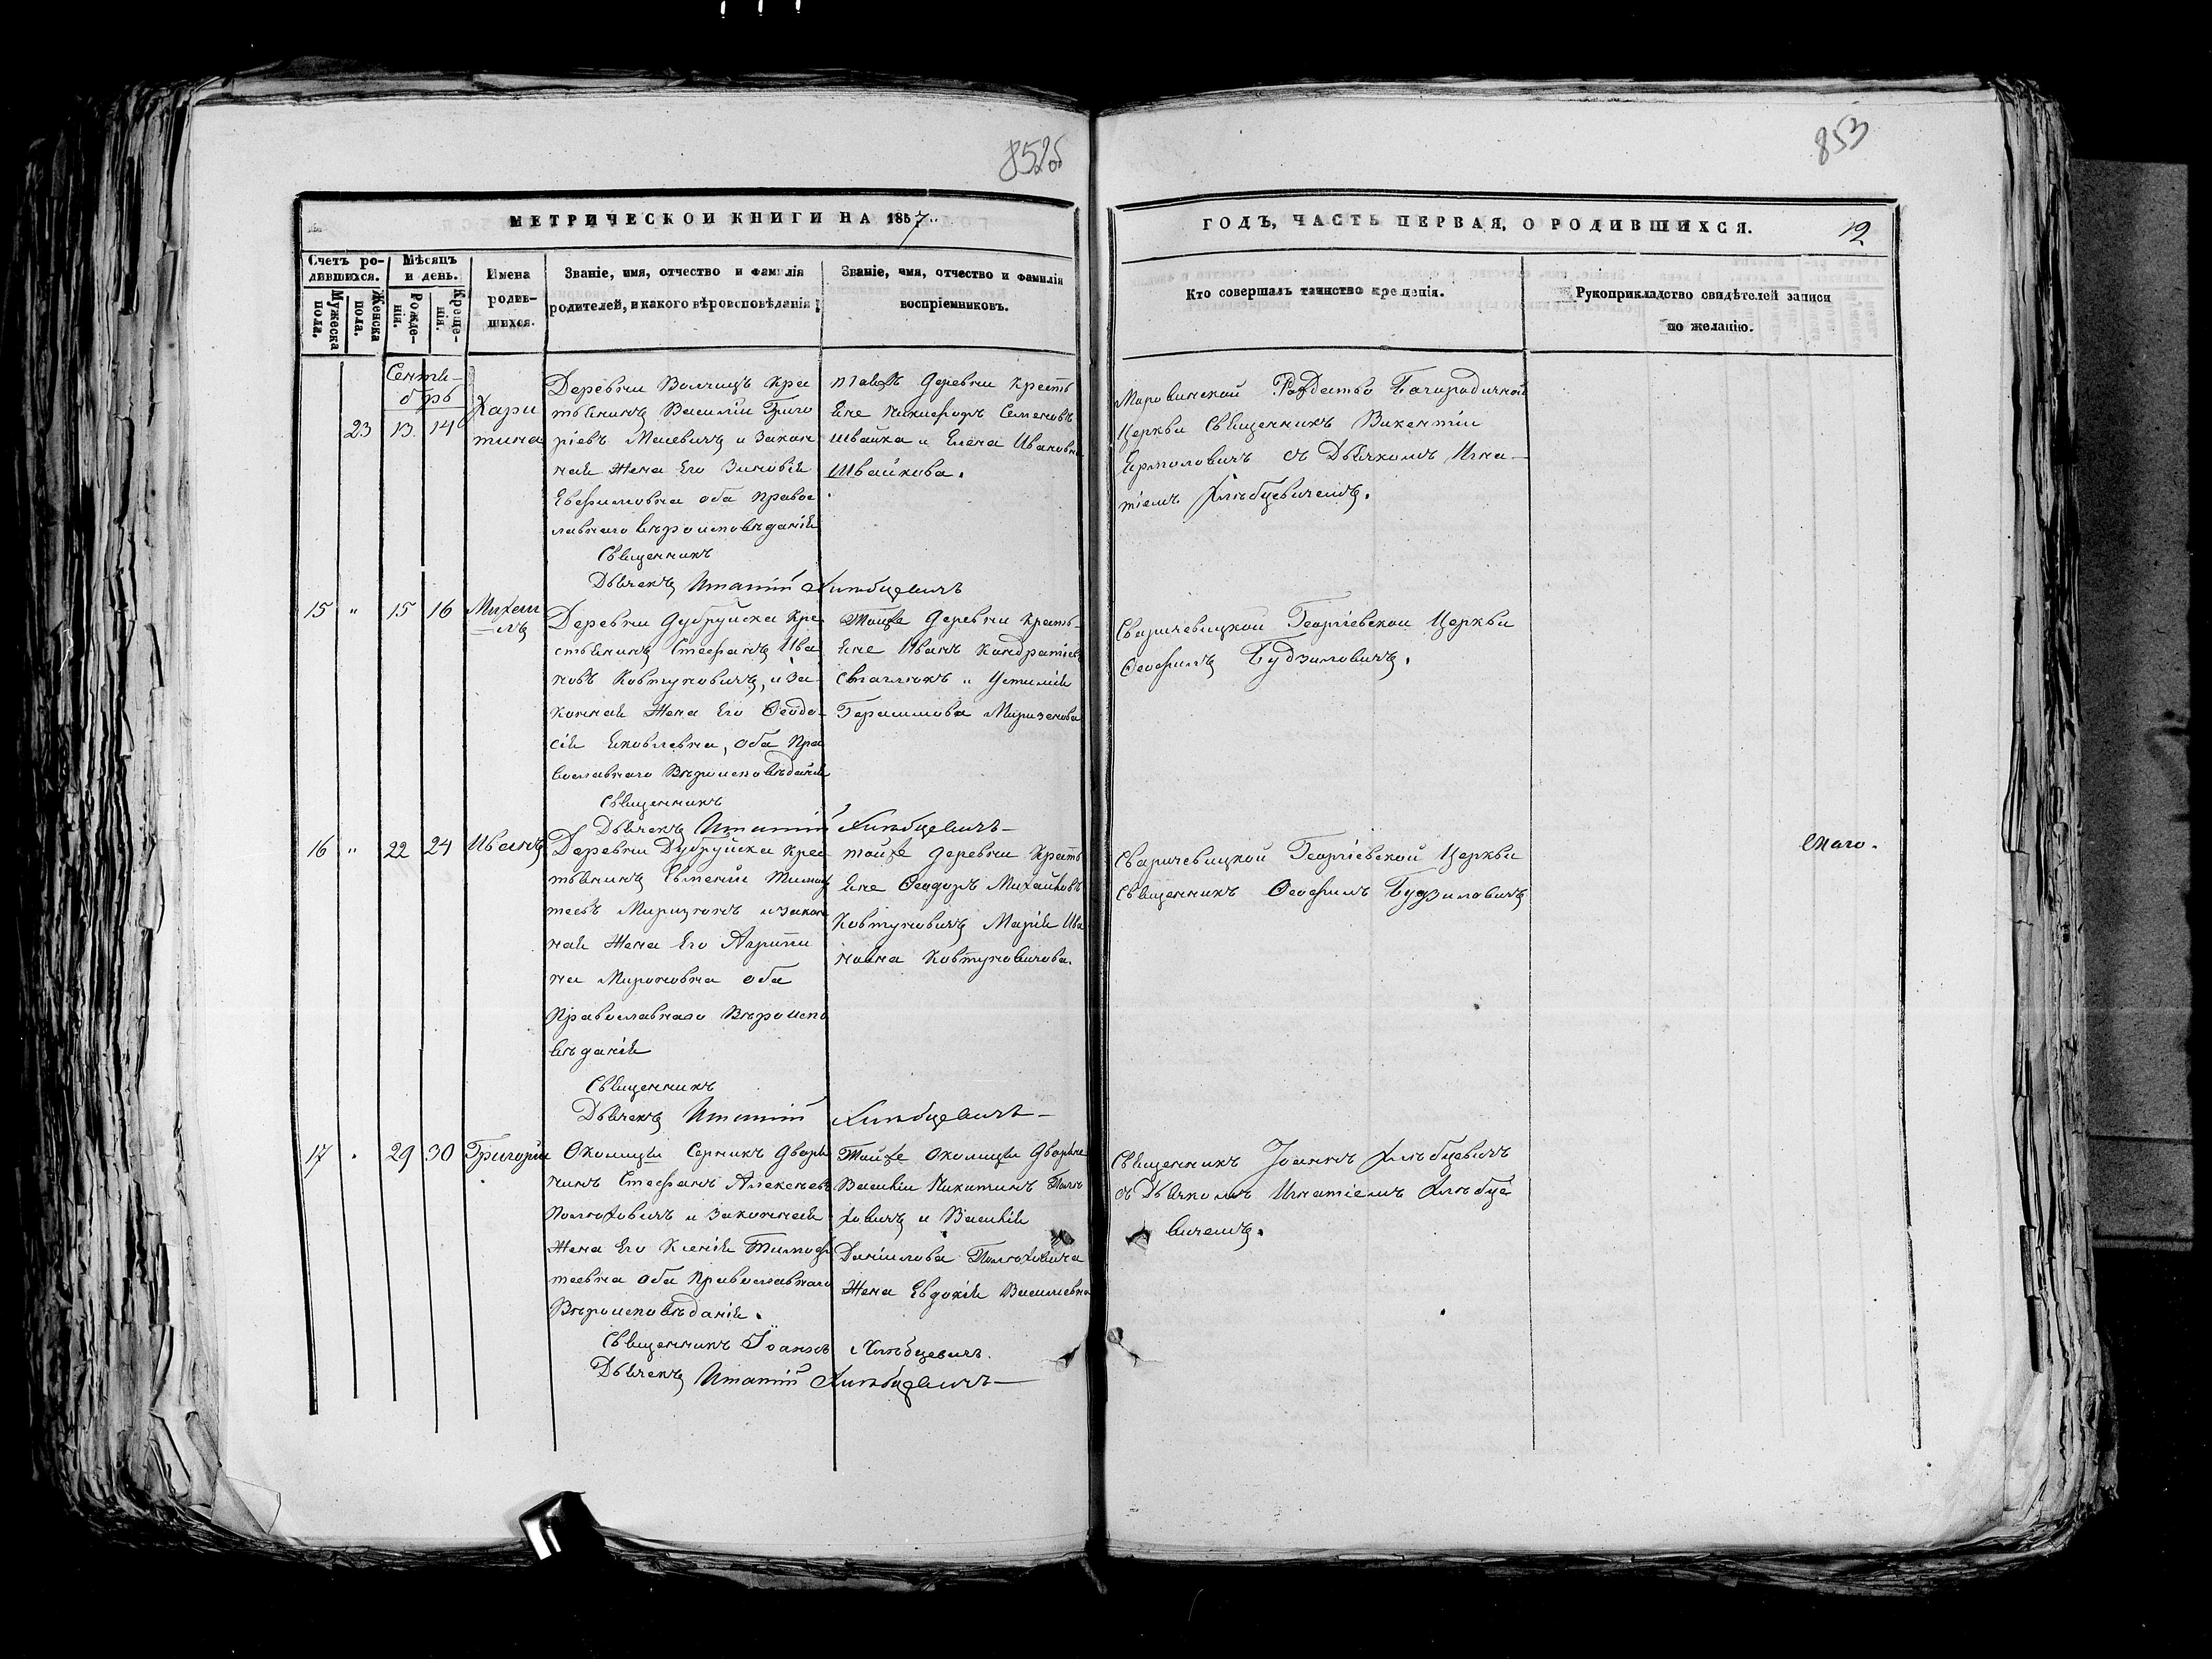 852об
853
МЕТРИЧЕСКОЙ КНИГИ НА 1857
ГОДЪ, ЧАСТЬ ПЕРВАЯ, О РОДИВШИХСЯ.
12
Счетъ ро-
дившихся.
Мужеска
пола.
Женска
пола.
Мѣсяцъ
и день.
Рожде-
нія.
Креще-
нія.
Имена
родив-
шихся.
Званіе, имя, отчество и фамилія
родителей, и какого вѣроисповѣданія
Званіе, имя, отчество и фамилія
воспріемниковъ.
Кто совершалъ таинство крещенія.
Рукоприкладство свидѣтелей записи
по желанію.
Сентя-
брь
23 13 14
Хари
тина
Деревни Волчицъ Кре
стьянинъ Василій Григо
ріевъ и закон
ная жена его Зиновія
Евфимовна оба правос
лавнаго вѣроисповѣданія
Священникъ
Дьячекъ Игнатій Хлѣбцевичъ
деревни крестья
не Никифоръ Семеновъ
Швайка и Елена Ивановна
Швайкова.
Рождество Богородичной
Церкви Священникъ Викентій
Ермоловичъ съ Дьячкомъ Игна-
тіемъ Хлѣбцевичемъ.
15 " 15 16
Михаи
-лъ
Деревни Дубруйска Кре
стьянинъ Стефанъ Ива
новъ Ковтуновичъ, и за
конная жена его Ѳеодо-
сія Яковлевна, оба пра
вославнаго Вѣроисповѣданія
Священникъ
Дьячекъ Игнатій Хлѣбцевичъ
Тойже деревни крестья-
яне Иванъ Кондратіевъ
Устимія
Герасимова
Сваричевицкой Георгіевской Церкви
Ѳеофилъ Будзиловичъ.
16 " 22 24
Иванъ
Деревни Дубруйска Крес
тьянинъ Евгеній Тимоф
теевъ и закон
ная жена его Агрипи
на Мироновна оба
Православнаго Вѣроиспо
вѣданія
Священникъ
Дьячекъ Игнатій Хлѣбцевичъ
тойже деревни Крестья
яне Ѳеодоръ Михайловъ
Ковтуновичъ Марія Ива
новна Ковтуновичова.
Сваричевицкой Георгіевской Церкви
Священникъ Ѳеофилъ Будзиловичъ
17 29 30
Григорій
Околицы Серникъ дворя
нинъ Стефанъ Алексѣевъ
Полюховичъ и законная
жена его Ксенія Тимоф
теевна оба православнаго
Вѣроисповѣданія.
Священникъ Іоаннъ Хлѣбцевичъ.
Дьячекъ Игнатій Хлѣбцевичъ
Тойже околицы дворяне
Василій Никитинъ Полю
ховичъ и Василія
Даніилова Полюховича
жена Евдокія Васильевна
Священникъ Іоаннъ Хлѣбцевичъ
съ Дьячкомъ Игнатіемъ Хлѣбце
вичемъ.